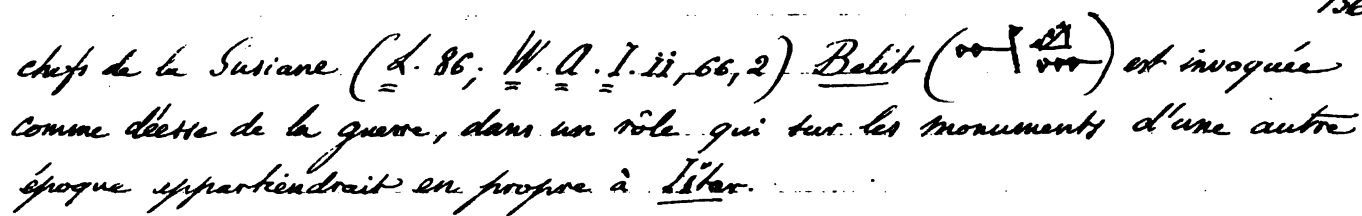 chefs de la Susiane (L. 86; W. A. I. ii, 66, 2) Belit () est invoquée
comme déesse de la guerre, dans un rôle qui sur les monuments d'une autre
époque appartiendrait en propre à Ištar.